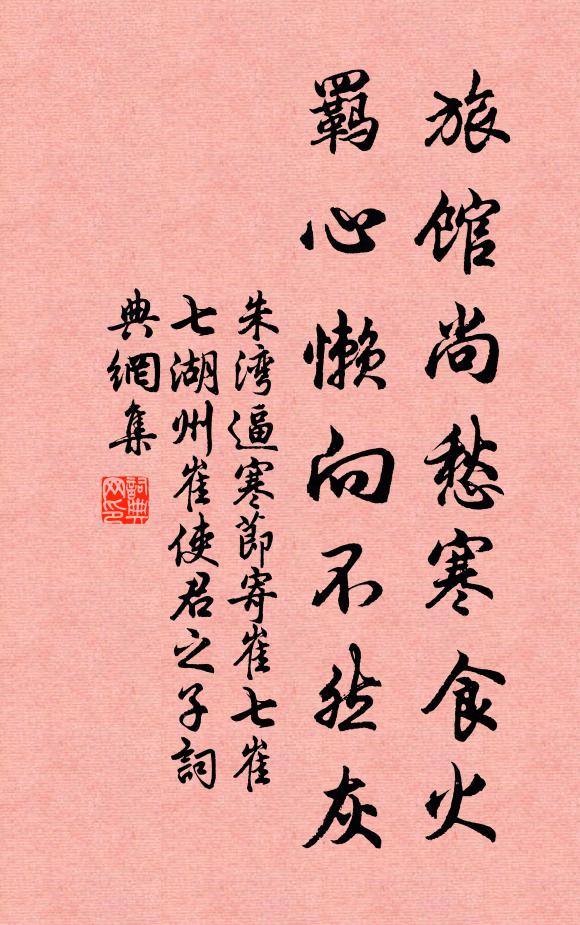 旅館尚愁寒食火
羈心懶向不然灰
朱灣逼寒節寄崔七崔
七湖州崔使君之子詞
典網集
詞典網印